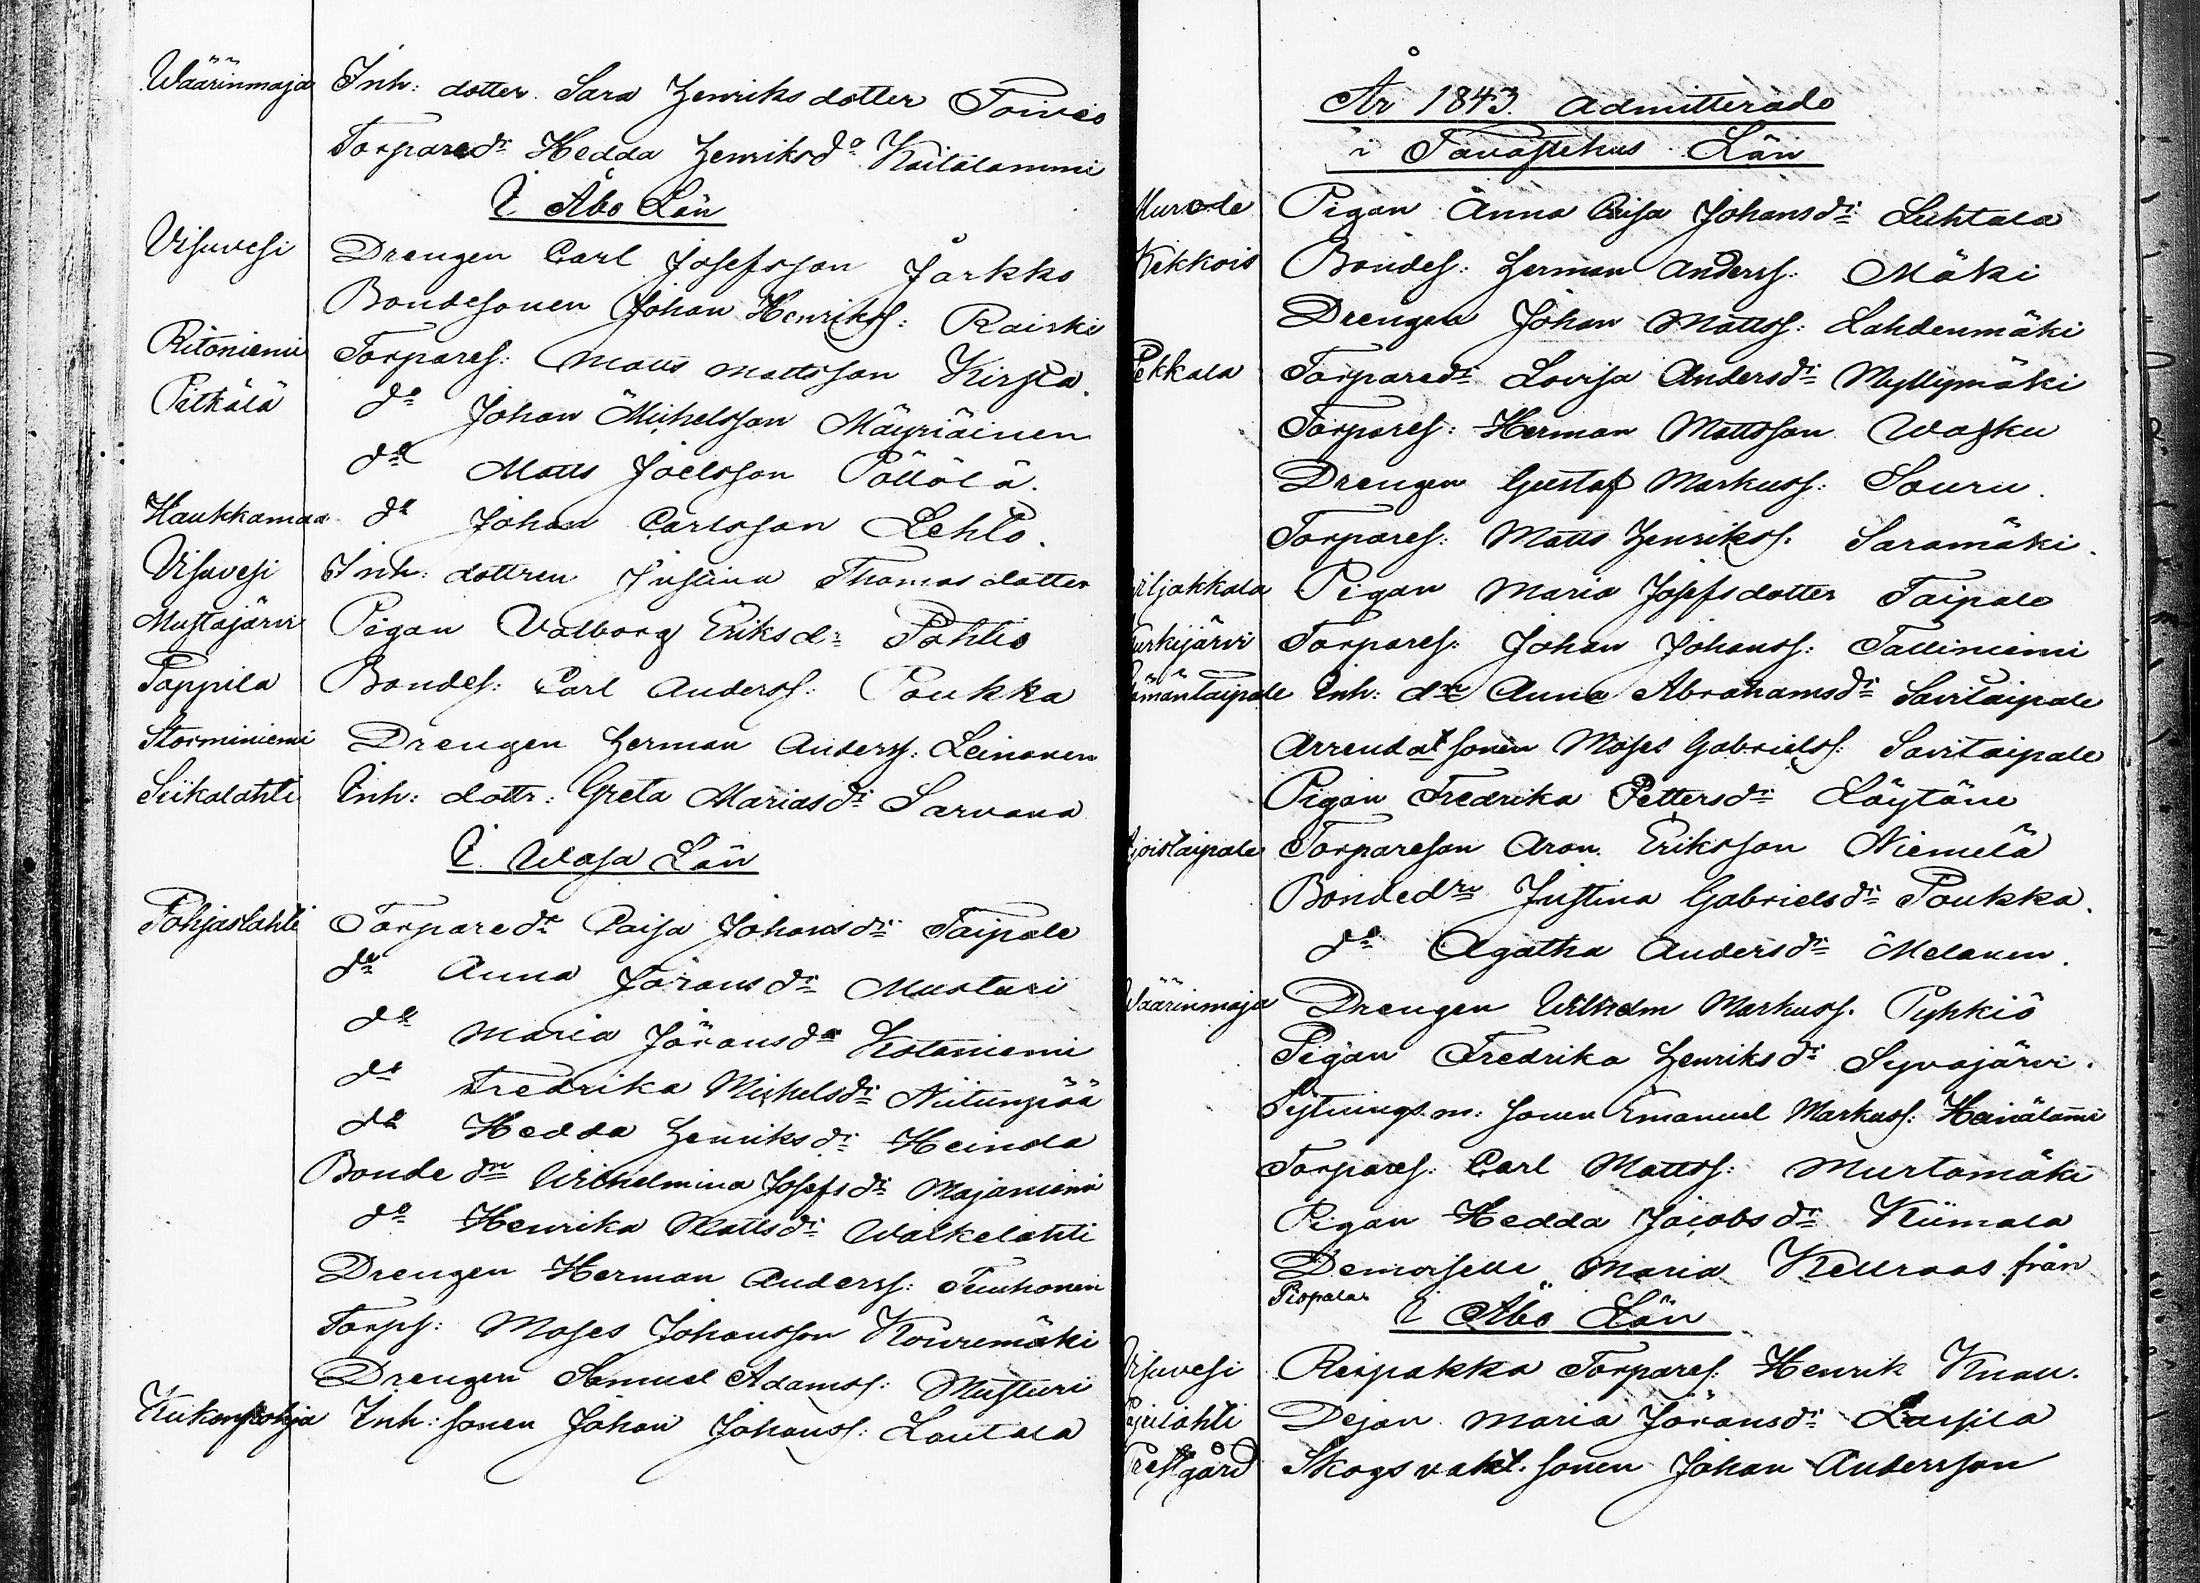 Wäärinmaja Inh: dotter Sara Henriksdotter Toivio
Torparedr Hedda Henriksdo Kailalammi
I Åbo Län
Visuvesi Drengen Carl Josefsson Jarkko
Bondesonen Johan Henrikss: Raiski
Ritoniemi Torpares: Matts Mattsson Kirsta.
Pitkälä do Johan Michelsson Mäyriäinen
do Matts Joelsson Pöllölä.
Haukkamaa do Johan Carlsson Lehto.
Visuvesi Inh: dottren Justina Thomasdotter
Mustajärvi Pigan Valborg Eriksdr Pohtio
Pappila Bondes: Carl Anderss: Poukka
Storminiemi Drengen Herman Anderss: Leinonen
Siikalahti Inh: dottr: Greta Mariasdr Sarvana
I Wasa Län
Pohjaslahti Torparedr Caisa Johansdr Taipale
do Anna Jöransdr Musturi
do Maria Jöransdr Kotaniemi
do Fredrika Michelsdr Niitunpää
do Hedda Henriksdr Heinola
Bonde dr Wilhelmina Josefsdr Majaniemi
do Henrika Mattsdr Walkelahti
Drengen Herman Anderss: Tuuhonen
Torps: Moses Johansson Kouremäki
Drengen Samuel Adamss: Musturi
Kukonpohja Inh: sonen Johan Johanss: Lautala
År 1843. admitterade
i Tavastehus Län
Murole Pigan Anna Caisa Johansdr Luhtala
Kekkois Bondes: Herman Anderss: Mäki
Drengen Johan Mattss: Lahdenmäki
Pekkala Torparedr Lovisa Andersdr Myllymäki
Torpares: Herman Mattsson Wasku
Drengen Gustaf Markuss: Souru.
Torpares: Matts Henrikss: Saramäki.
iljakkala Pigan Maria Josefsdotter Taipale
urkijärvi Torpares: Johan Johanss: Talliniemi
ämäntaipale Inh: dr Anna Abrahamsdr Savitaipale
Arrendat sonen Moses Gabrielss: Savitaipale
Pigan Fredrika Pettersdr Löytäne
joistaipale Torpareson Aron Eriksson Niemelä
Bondedr Justina Gabrielsdr Poukka.
do Agatha Andersdr Melanen.
Wäärinmaja Drengen Wilhelm Markuss. Pyhkiö
Pigan Fredrika Henriksdr Syvajärvi.
Sytnings.m: sonen Emanuel Markuss: Heinälami
Torpares: Carl Mattss: Murtomäki
Pigan Hedda Jacobsdr Kiimala
Demoiselle Maria Kellraas från
Piopala
I Åbo Län
Visuvesi Reipakka Torpares. Henrik Knau.
julahti Dejan Maria Jöransdr Lassila
Prestgård Skogsvakt. sonen Johan Andersson